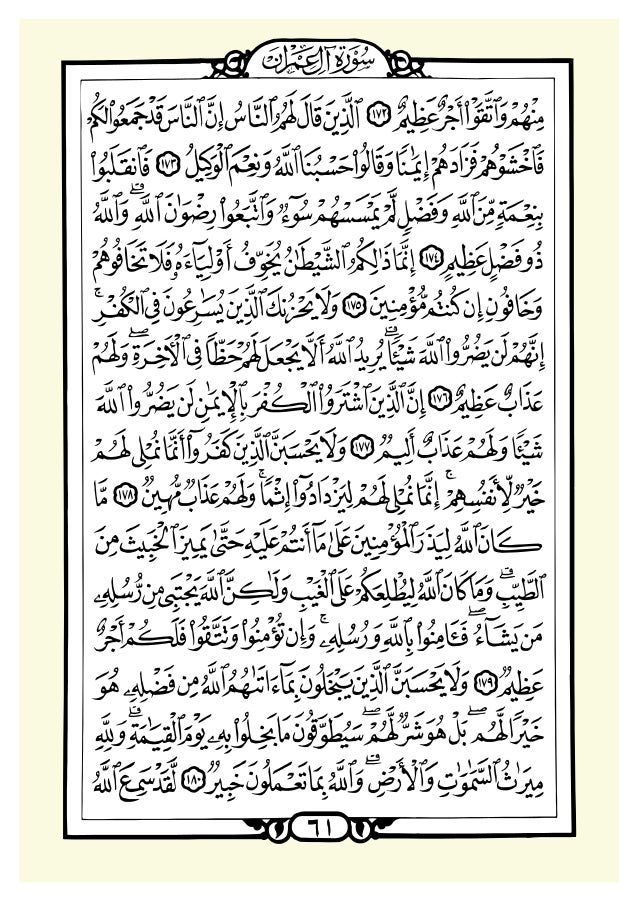 سُورَةُ آلِ عِمْرَان
مِنْهُمْ وَٱتَّقَوْا۟ أَجْرٌ عَظِيمٌ ١٧٢ ٱلَّذِينَ قَالَ لَهُمُ ٱلنَّاسُ إِنَّ ٱلنَّاسَ قَدْ جَمَعُوا۟ لَكُمْ
فَٱخْشَوْهُمْ فَزَادَهُمْ إِيمَٰنًا وَقَالُوا۟ حَسْبُنَا ٱللَّهُ وَنِعْمَ ٱلْوَكِيلُ ١٧٣ فَٱنقَلَبُوا۟
بِنِعْمَةٍ مِّنَ ٱللَّهِ وَفَضْلٍ لَّمْ يَمْسَسْهُمْ سُوٓءٌ وَٱتَّبَعُوا۟ رِضْوَٰنَ ٱللَّهِ ۗ وَٱللَّهُ
ذُو فَضْلٍ عَظِيمٍ ١٧٤ إِنَّمَا ذَٰلِكُمُ ٱلشَّيْطَٰنُ يُخَوِّفُ أَوْلِيَآءَهُۥ فَلَا تَخَافُوهُمْ
وَخَافُونِ إِن كُنتُم مُّؤْمِنِينَ ١٧٥ وَلَا يَحْزُنكَ ٱلَّذِينَ يُسَٰرِعُونَ فِى ٱلْكُفْرِ ۚ
إِنَّهُمْ لَن يَضُرُّوا۟ ٱللَّهَ شَيْـًٔا ۗ يُرِيدُ ٱللَّهُ أَلَّا يَجْعَلَ لَهُمْ حَظًّا فِى ٱلْءَاخِرَةِ ۖ وَلَهُمْ
عَذَابٌ عَظِيمٌ ١٧٦ إِنَّ ٱلَّذِينَ ٱشْتَرَوُا۟ ٱلْكُفْرَ بِٱلْإِيمَٰنِ لَن يَضُرُّوا۟ ٱللَّهَ
شَيْـًٔا وَلَهُمْ عَذَابٌ أَلِيمٌ ١٧٧ وَلَا يَحْسَبَنَّ ٱلَّذِينَ كَفَرُوٓا۟ أَنَّمَا نُمْلِى لَهُمْ
خَيْرٌ لِّأَنفُسِهِمْ ۚ إِنَّمَا نُمْلِى لَهُمْ لِيَزْدَادُوٓا۟ إِثْمًا ۚ وَلَهُمْ عَذَابٌ مُّهِينٌ ١٧٨ مَّا
كَانَ ٱللَّهُ لِيَذَرَ ٱلْمُؤْمِنِينَ عَلَىٰ مَآ أَنتُمْ عَلَيْهِ حَتَّىٰ يَمِيزَ ٱلْخَبِيثَ مِنَ
ٱلطَّيِّبِ ۗ وَمَا كَانَ ٱللَّهُ لِيُطْلِعَكُمْ عَلَى ٱلْغَيْبِ وَلَٰكِنَّ ٱللَّهَ يَجْتَبِى مِن رُّسُلِهِۦ
مَن يَشَآءُ ۖ فَـَٔامِنُوا۟ بِٱللَّهِ وَرُسُلِهِۦ ۚ وَإِن تُؤْمِنُوا۟ وَتَتَّقُوا۟ فَلَكُمْ أَجْرٌ
عَظِيمٌ ١٧٩ وَلَا يَحْسَبَنَّ ٱلَّذِينَ يَبْخَلُونَ بِمَآ ءَاتَىٰهُمُ ٱللَّهُ مِن فَضْلِهِۦ هُوَ
خَيْرًا لَّهُم ۖ بَلْ هُوَ شَرٌّ لَّهُمْ ۖ سَيُطَوَّقُونَ مَا بَخِلُوا۟ بِهِۦ يَوْمَ ٱلْقِيَٰمَةِ ۗ وَلِلَّهِ
مِيرَٰثُ ٱلسَّمَٰوَٰتِ وَٱلْأَرْضِ ۗ وَٱللَّهُ بِمَا تَعْمَلُونَ خَبِيرٌ ١٨٠ لَّقَدْ سَمِعَ ٱللَّهُ
٦١